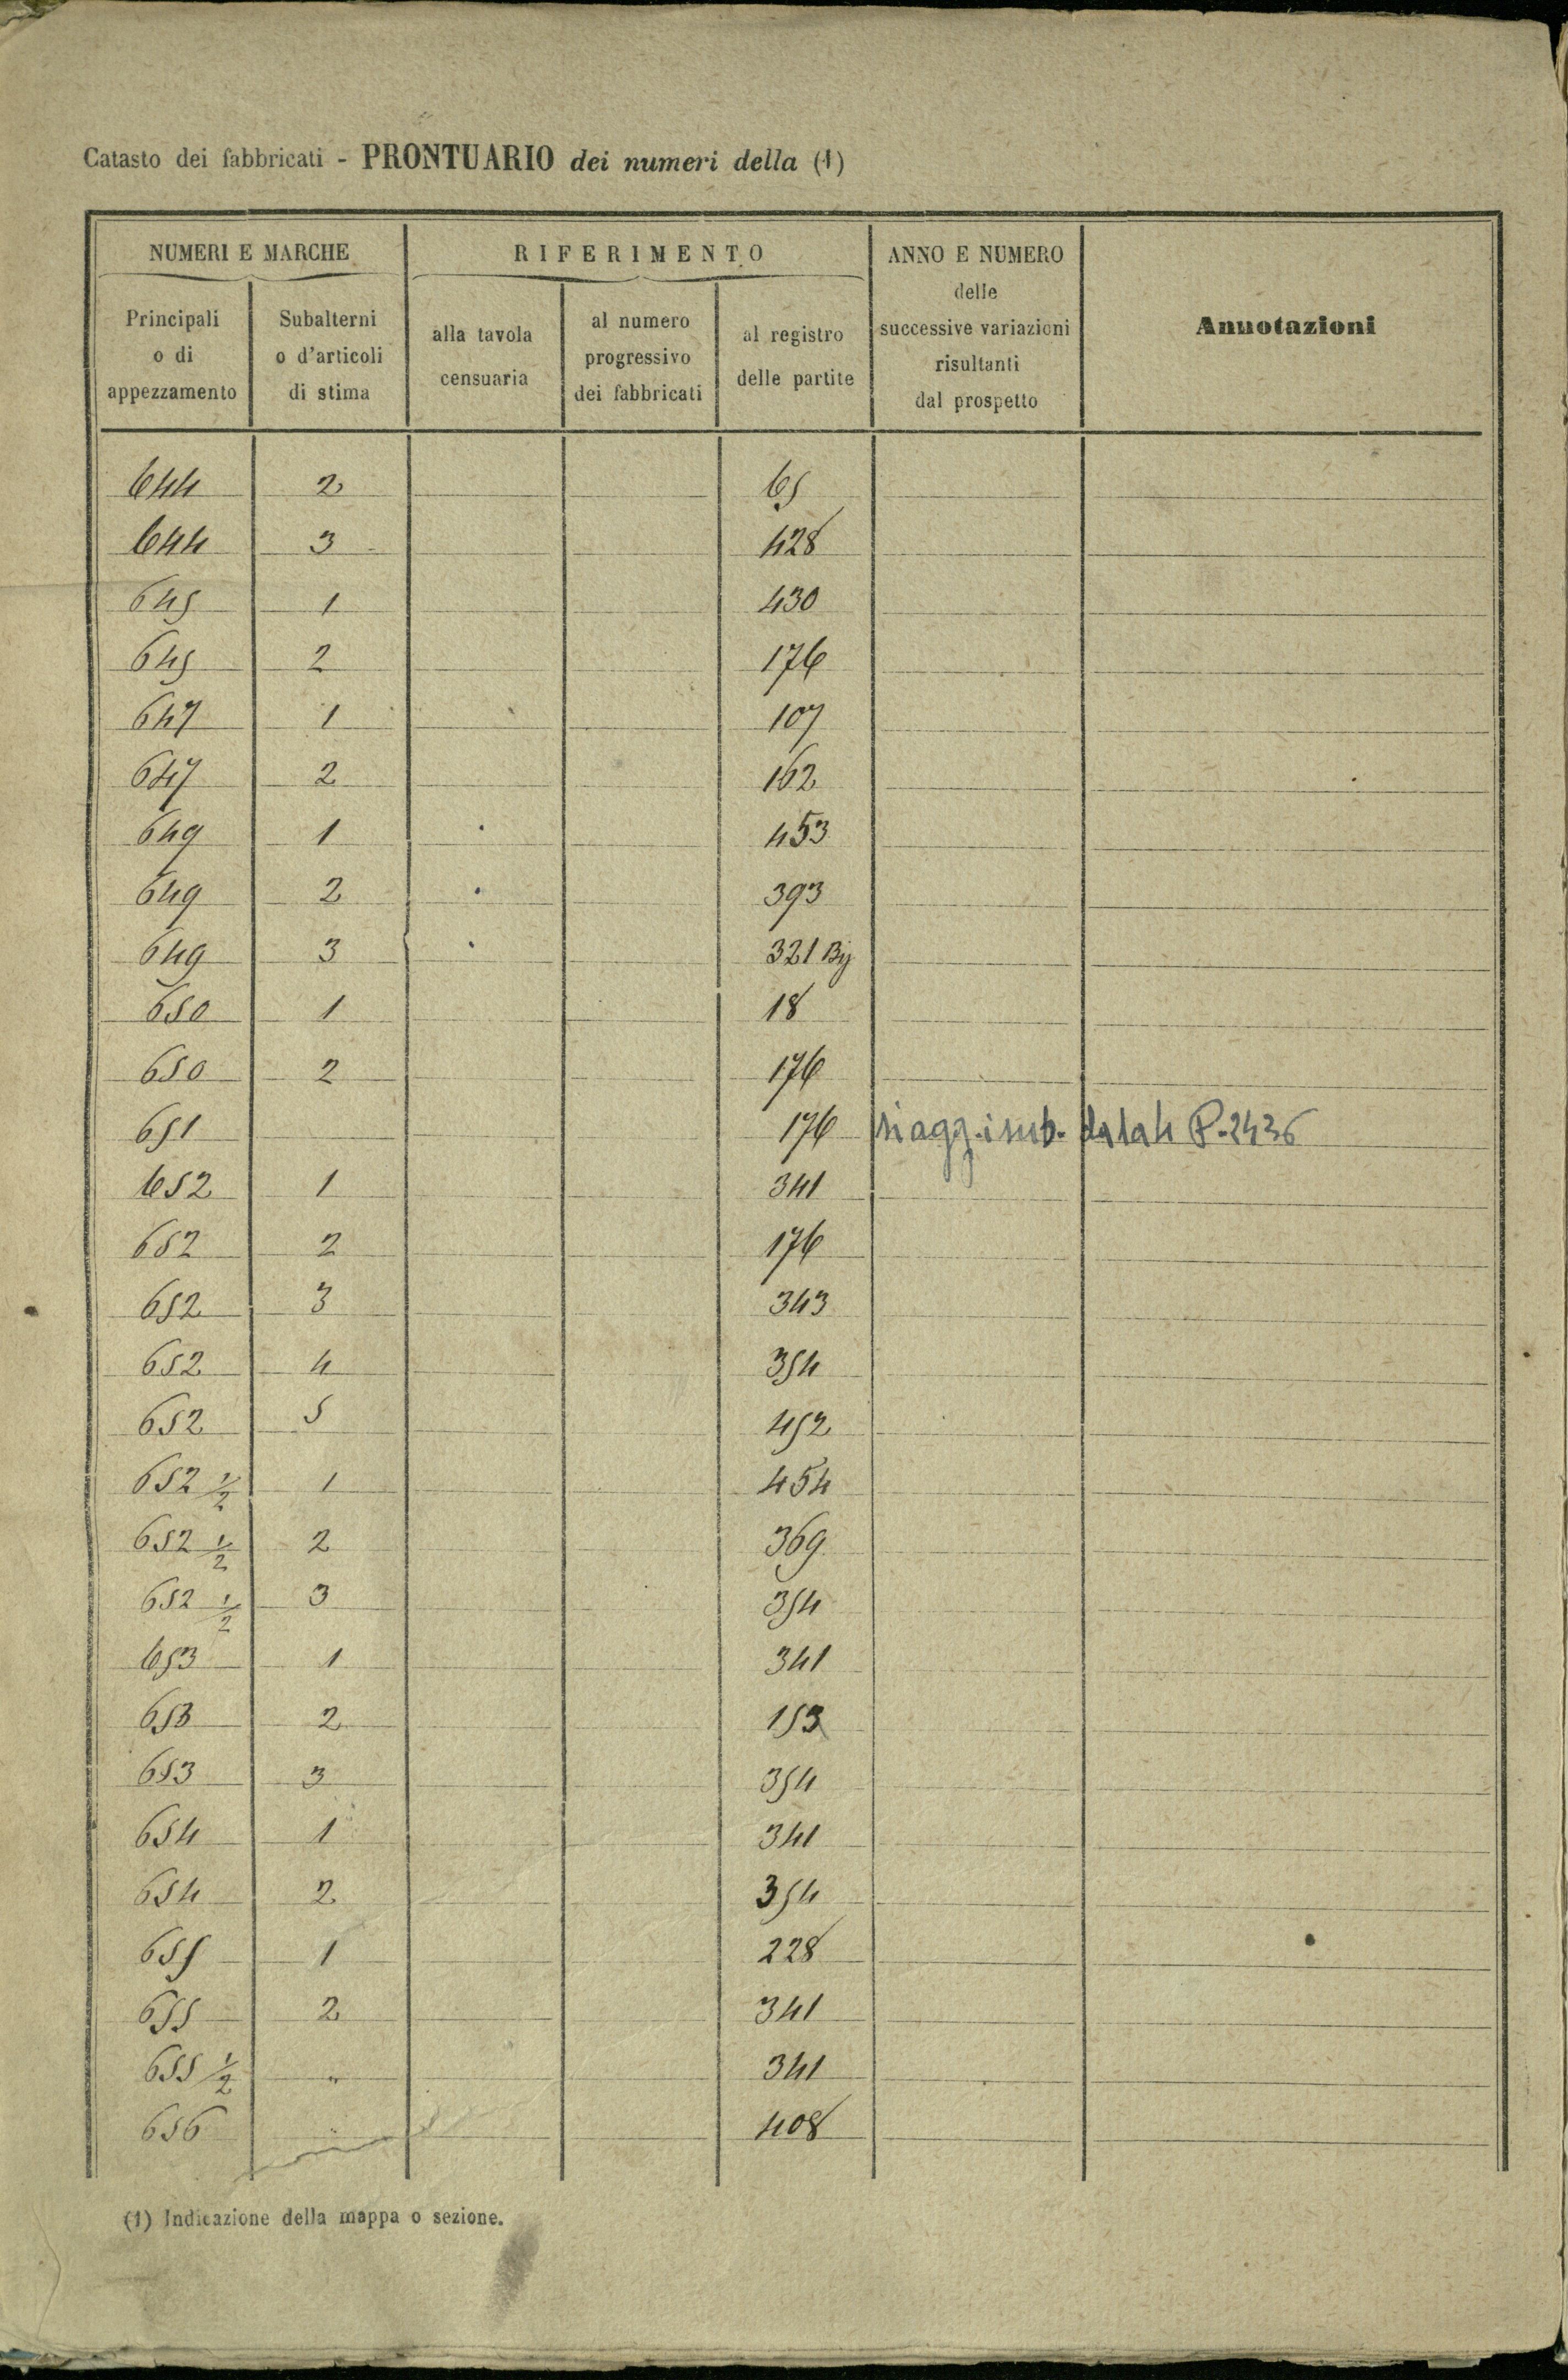 Catasto dei fabbricati - PRONTUARIO dei numeri della (1)
NUMERI E MARCHE
RIFERIMENTO
ANNO E NUMERO
delle
successive variazioni
risultanti
dal prospetto
Annotazioni
Principali
o di
appezzamento
Subalterni
o d'articoli
di stima
alla tavola
censuaria
al numero
progressivo
dei fabbricati
al registro
delle partite
644 2 65
644 3 428
645 1 430
645 2 176
647 1 107
647 2 162
649 1 453
649 2 393
649 3 321 Bis
650 1 18
650 2 176
651 176 si agg. i sub. da 1 a 4 P. 2436
652 1 341
652 2 176
652 3 343
652 4 354
652 5 452
652 1/2 1 454
652 1/2 2 369
652 1/2 3 354
653 1 341
653 2 153
653 3 354
654 1 341
654 2 354
655 1 228
655 2 341
655 1/2 " 341
656 " 408
(1) Indicazione della mappa o sezione.